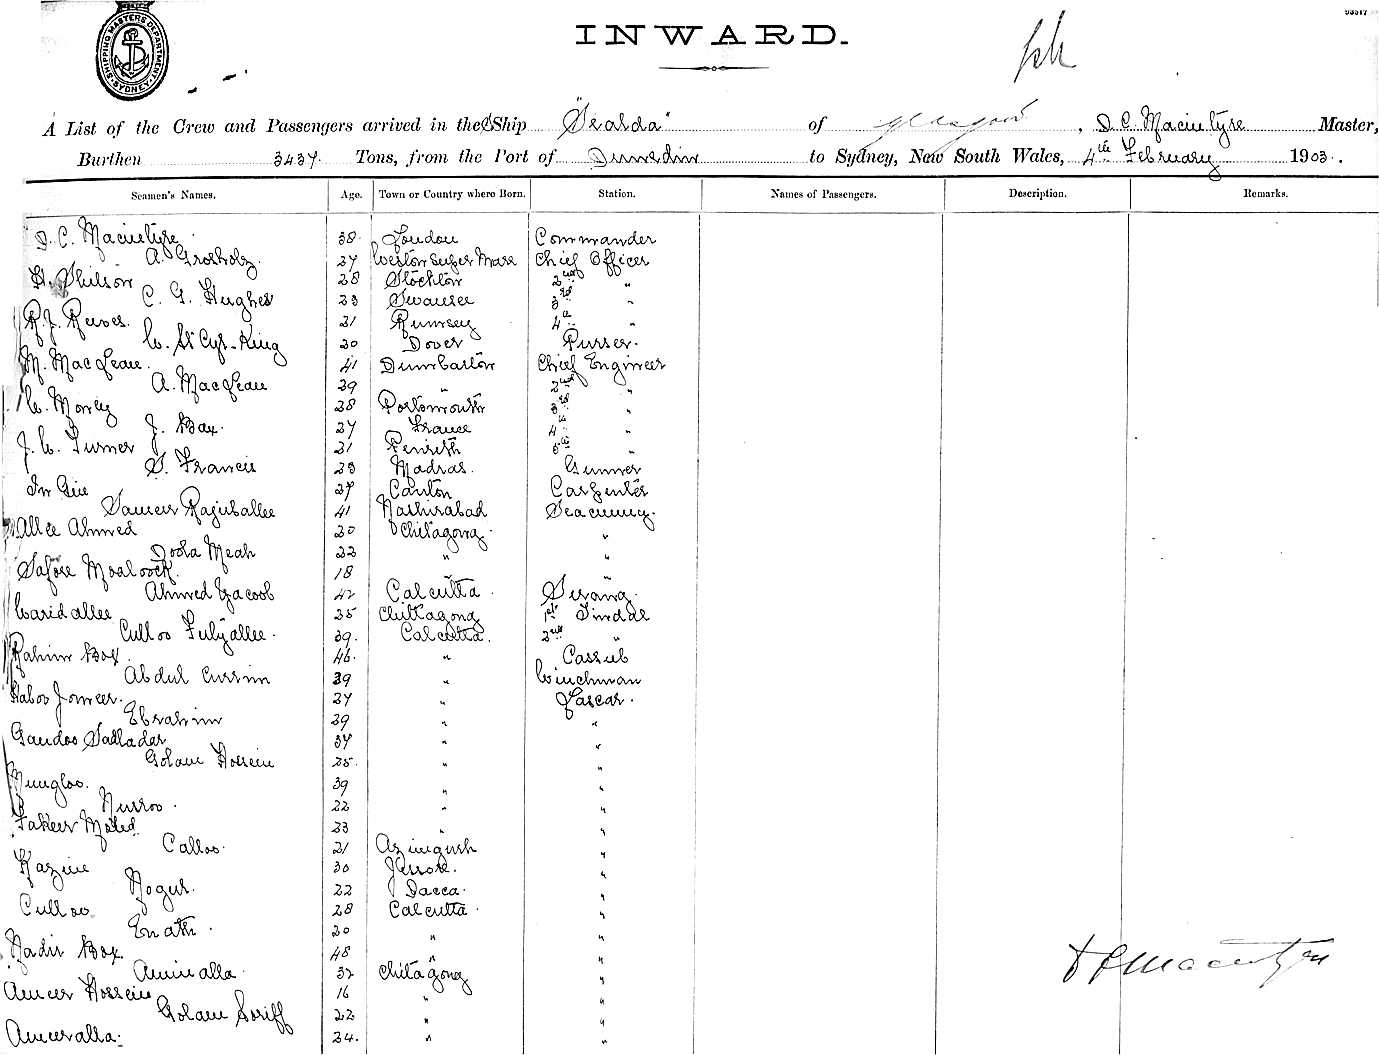 93517
SHIPPING MASTERS DEPARTMENT SYDNEY
INWARD.
A List of the Crew and Passengers arrived in the S Ship "Sealda" of Glasgow, D. C. Macintyre Master,
Burthen 3437. Tons, from the Port of Dunedin to Sydney, New South Wales, 4th February 1903.
Seamen's Names. Age. Town or Country where Born. Station. Names of Passengers. Description. Remarks.
D. C. Macintyre 38 London Commander
A. Grosholz. 27 Weston Super Mare Chief Officer
H. Philson 28 Stockton 2nd "
C. G. Hughes 23 Swansea 3rd "
R. J. Reeves. 21 Rumsey 4th "
W. St Cyr-King 20 Dover Purser.
M. MacLean. 41 Dumbarton Chief Engineer
A. MacLean 29 " 2nd "
W. Morey 28 Portsmouth 3rd "
J. Bax. 27 France 4th "
J. W. Turner 21 Penrith 5th "
S. Francis 23 Madras. Gunner
27 Canton Carpenter
Rajuballee 41 Nashirabad Seacunny.
Allee Ahmed 20 Chitagong "
Doola Meah 22 " "
18 " "
Ahmed Yacoob 42 Calcutta Serang.
Waridallee 25 Chittagong 1st Tindal
Culloo 39. Calcutta. 2nd "
Rahim Box 46. " Cassub
Abdul Currim 39 " Winchman
27 " Lascar.
Ebrahim 29 " "
34 " "
Golam Hossein 25. " "
Mungloo. 39 " "
Nurroo. 22 " "
Fakeer Mahd. 23 " "
Calloo. 21 "
Kazim 30 Jessore. "
Nogur. 22 Dacca. "
Culloo 28 Calcutta. "
Enath. 20 " "
Nadir Box 48 " "
Amiralla. 32 Chitagong "
Ameer Hossein 16 " "
Golam Soriff 22 " "
Ameeralla. 24. " "
D C Macintyre